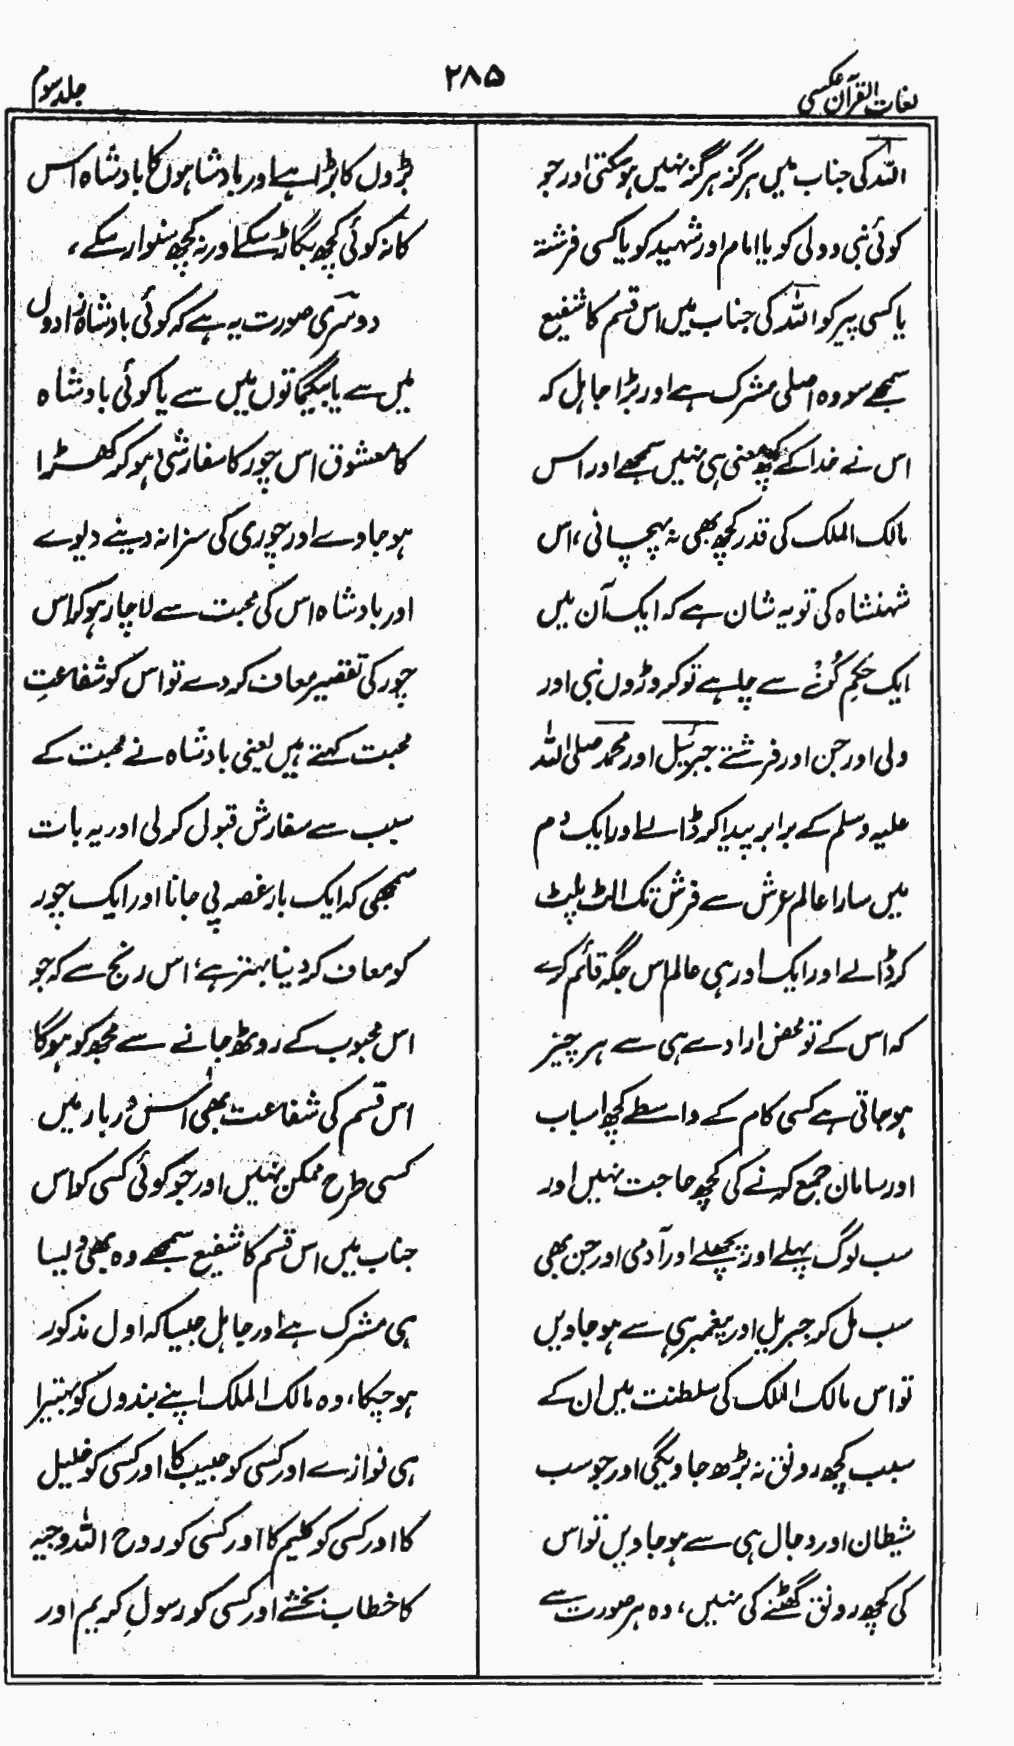 لغات القرآن عکسی
۲۸۵
جلد سوم
اللہ کی جناب میں ہرگز ہرگز نہیں ہوسکتی اور جو
کوئی نبی و ولی کو یا امام اور شہید کو یا کسی فرشتہ
یا کسی پیر کو اللہ کی جناب میں اس قسم کا شفیع
سمجھے سو وہ اصلی مشرک ہے اور بڑا جاہل کہ
اس نے خدا کے کچھ معنی ہی نہیں سمجھے اور اس
مالک الملک کی قدر کچھ بھی نہ پہچانی، اس
شہنشاہ کی تو یہ شان ہے کہ ایک آن میں
ایک حکمِ کُن سے چاہے تو کروڑوں نبی اور
ولی اور جن اور فرشتے جبرئیل اور محمد صلی اللہ
علیہ وسلم کے برابر پیدا کر ڈالے اور ایک دم
میں سارا عالم عرش سے فرش تک الٹ پلٹ
کر ڈالے اور ایک اور ہی عالم اس جگہ قائم کرے
کہ اس کے تو محض ارادے ہی سے ہر چیز
ہوجاتی ہے کسی کام کے واسطے کچھ اسباب
اور سامان جمع کرنے کی کچھ حاجت نہیں اور
سب لوگ پہلے اور پچھلے اور آدمی اور جن بھی
سب مل کر جبریل اور پیغمبر ہی سے ہوجاویں
تو اس مالک الملک کی سلطنت میں ان کے
سبب کچھ رونق نہ بڑھ جاویگی اور جو سب
شیطان اور دجال ہی سے ہوجاویں تو اس
کی کچھ رونق گھٹنے کی نہیں، وہ ہر صورت سے
بڑوں کا بڑا ہے اور بادشاہوں کا بادشاہ اس
کا نہ کوئی کچھ بگاڑ سکے اور نہ کچھ سنوار سکے،
دوسری صورت یہ ہے کہ کوئی بادشاہزادوں
میں سے یا بیگماتوں میں سے یا کوئی بادشاہ
کا معشوق اس چور کا سفارشی ہو کر کھڑا
ہوجاوے اور چوری کی سزا نہ دینے دیوے
اور بادشاہ اس کی محبت سے لاچار ہو کر اس
چور کی تقصیر معاف کردے تو اس کو شفاعتِ
محبت کہتے ہیں یعنی بادشاہ نے محبت کے
سبب سے سفارش قبول کرلی اور یہ بات
سمجھی کہ ایک بار غصہ پی جانا اور ایک چور
کو معاف کردینا بہتر ہے، اس رنج سے کہ جو
اس محبوب کے روٹھ جانے سے مجھ کو ہوگا
اس قسم کی شفاعت بھی اُس دربار میں
کسی طرح ممکن نہیں اور جو کوئی کسی کو اس
جناب میں اس قسم کا شفیع سمجھے وہ بھی ویسا
ہی مشرک ہے اور جاہل جیسا کہ اول مذکور
ہوچکا، وہ مالک الملک اپنے بندوں کو بہتیرا
ہی نوازے اور کسی کو حبیب کا اور کسی کو خلیل
کا اور کسی کو کلیم کا اور کسی کو روح اللہ وجیہ
کا خطاب بخشے اور کسی کو رسولِ کریم اور